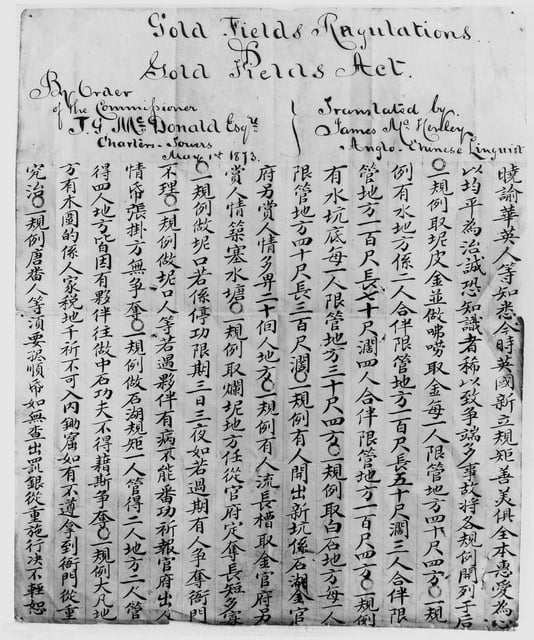 Gold Fields Regulations.
Gold Fields Act.
By Order
of the Commissioner
T. G. Mc Donald Esqre
Charters-Towers
May 1st 1873.
Translated by
James Mc Henley
Anglo-Chinese Linguist
曉諭華英人等知悉今時英國新立規矩善美俱全本惠愛為心
以均平為治誠恐知識者稀以致爭端多事故將各規例開列于后
〇一規例取坭皮金並做㖇嘮取金每一人限管地方四十尺四方〇一規
例有水地方係二人合伴限管地方一百尺長五十尺濶三人合伴限
管地方一百尺長七十尺濶四人合伴限管地方一百尺四方〇一規例
有水坑底每一人限管地方三十尺四方〇一規例取白石地方每一人
限管地方四十尺長三百尺濶〇一規例有人開出新坑係石湖金官
府另賞人情多畀二十個人地方〇一規例有人流長槽取金官府另
賞人情築塞水塘〇一規例取爛坭地方任從官府定奪長短多寡
〇一規例做坭口若係停功限期三日三夜如若過期有人爭奪衙門
不理〇一規例做坭口人等若遇夥伴有病不能畨功祈報官府出人
情帋張掛方無爭奪〇一規例做石湖規矩一人管得二人地方二人管
得四人地方皆因有夥伴往做中石功夫不得藉斯爭奪〇一規例大凡地
方有木圍的係人家稅地千祈不可入內鋤窟如有不遵拿到衙門從重
究治〇一規例唐畨人等湏要䟱順帋如無查出罰銀從重施行决不輕恕